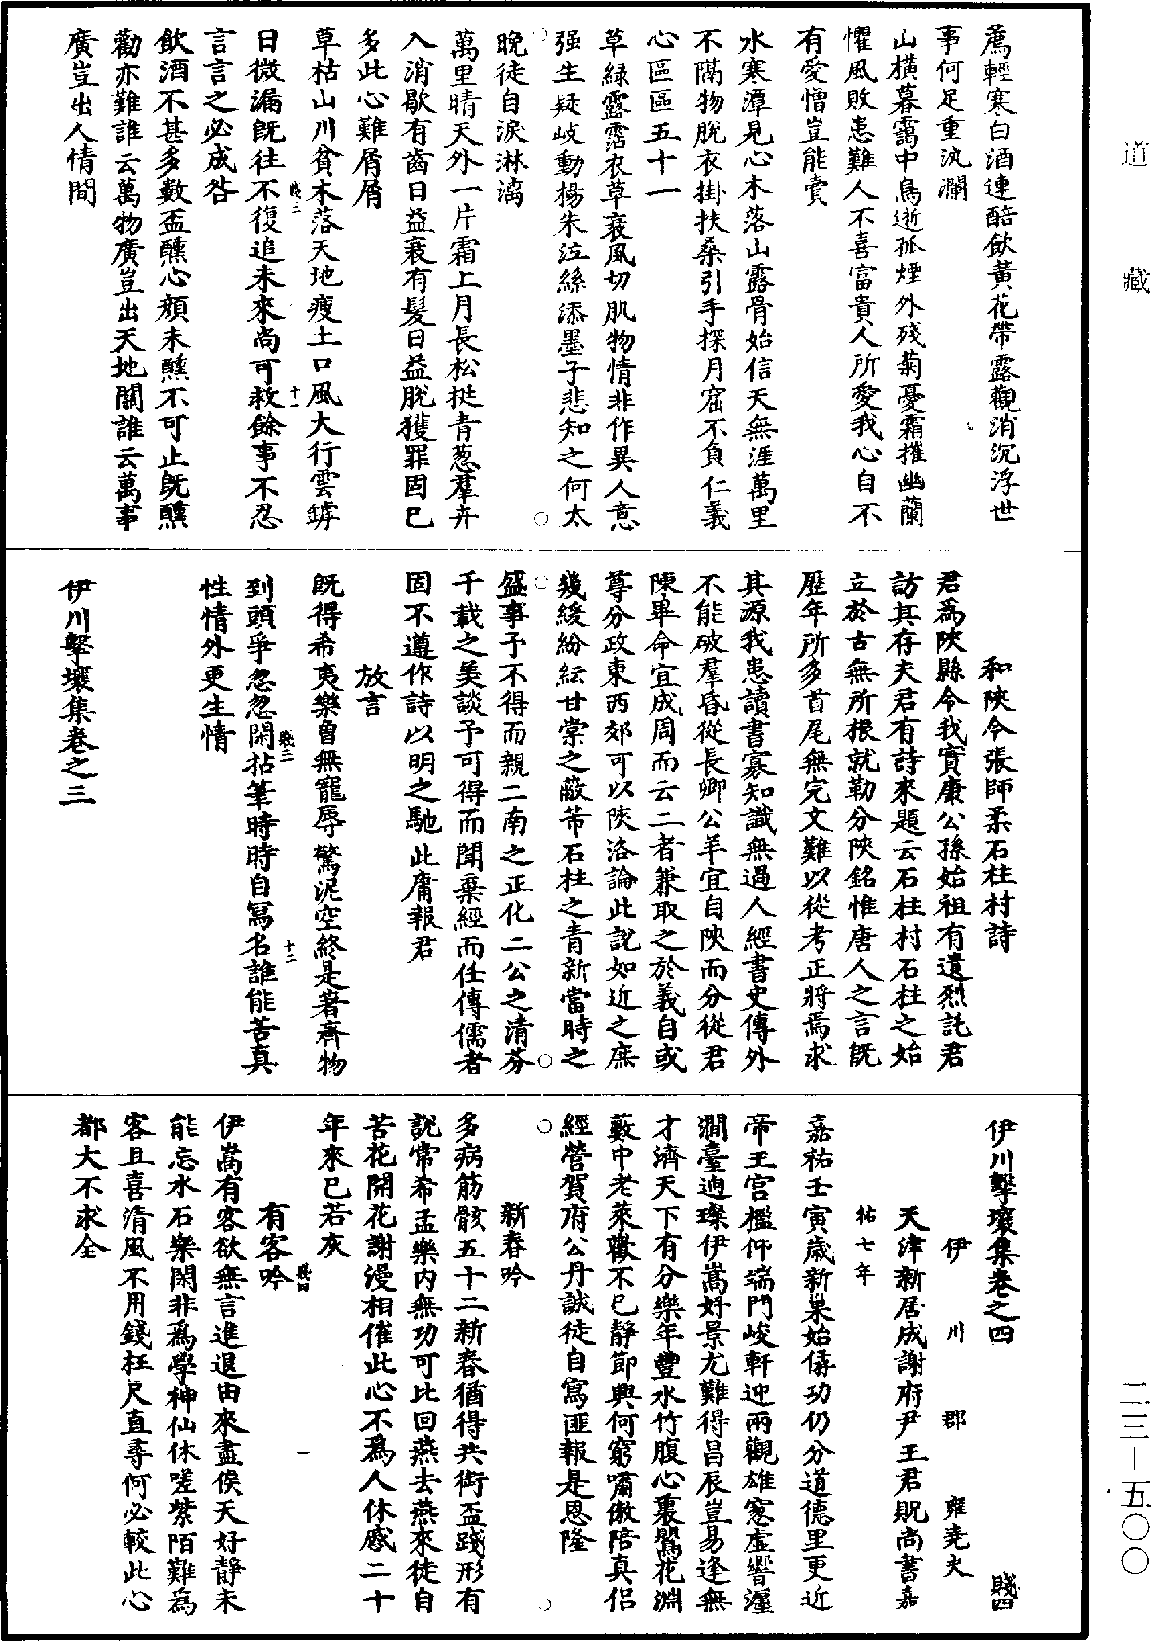 道藏
薦輕寒白酒連醅飲黃花帶露觀消沉浮世
事何足重汍瀾
山橫暮靄中鳥逝孤煙外殘菊憂霜摧幽蘭
懼風敗患難人不喜富貴人所愛我心自不
有愛憎豈能賣
水寒潭見心木落山露骨始信天無涯萬里
不隔物脫衣掛扶桑引手探月窟不負仁義
心區區五十一
草綠露霑衣草衰風切肌物情非作異人意
强生疑岐動楊朱泣絲添墨子悲知之何太
晚徒自淚淋漓
萬里晴天外一片霜上月長松挺青葱羣卉
入消歇有齒日益衰有髮日益脫獲罪固已
多此心難屑屑
草枯山川貧木落天地瘦土口風大行雲罅
日微漏既往不復追未來尚可救餘事不忍
言言之必成咎
飲酒不甚多數盃醺心顏未醺不可止既醺
勸亦難誰云萬物廣豈出天地關誰云萬事
廣豈出人情間
和陝令張師柔石柱村詩
君爲陝縣令我實康公孫始祖有遺烈託君
訪其存夫君有詩來題云石柱村石柱之始
立於古無所根就勒分陝銘惟唐人之言既
歷年所多首尾無完文難以從考正將焉求
其源我患讀書寡知識無過人經書史傳外
不能破羣昏從長卿公羊宜自陝而分從君
陳畢命宜成周而云二者兼取之於義自或
尊分政東西郊可以陝洛論此說如近之庶
幾緩紛紜甘棠之蔽芾石柱之青新當時之
盛事予不得而親二南之正化二公之清芬
千載之美談予可得而聞棄經而任傳儒者
固不遵作詩以明之馳此庸報君
放言
既得希夷樂曾無寵辱驚泥空終是著齊物
到頭爭忽忽閑拈筆時時自寫名誰能苦真
性情外更生情
伊川擊壤集卷之三
伊川擊壤集卷之四 賤四
伊川郡 雍堯夫
天津新居成謝府尹王君貺尚書嘉
祐七年
嘉祐壬寅歲新巢始僝功仍分道德里更近
帝王宮檻仰端門峻軒迎兩觀雄窓虛響瀍
澗臺迥璨伊嵩好景尤難得昌辰豈易逢無
才濟天下有分樂年豐水竹腹心裏鶯花淵
藪中老萊歡不已靜節興何窮嘯傲陪真侣
經營賀府公丹誠徒自寫匪報是恩隆
新春吟
多病筋骸五十二新春猶得共銜盃踐形有
說常希孟樂内無功可比回燕去燕來徒自
苦花開花謝漫相催此心不爲人休慼二十
年來已若灰
有客吟
伊嵩有客欲無言進退由來盡俟天好靜未
能忘水石樂閑非爲學神仙休嗟紫陌難為
客且喜清風不用錢枉尺直尋何必較此心
都大不求全
二三—五〇〇